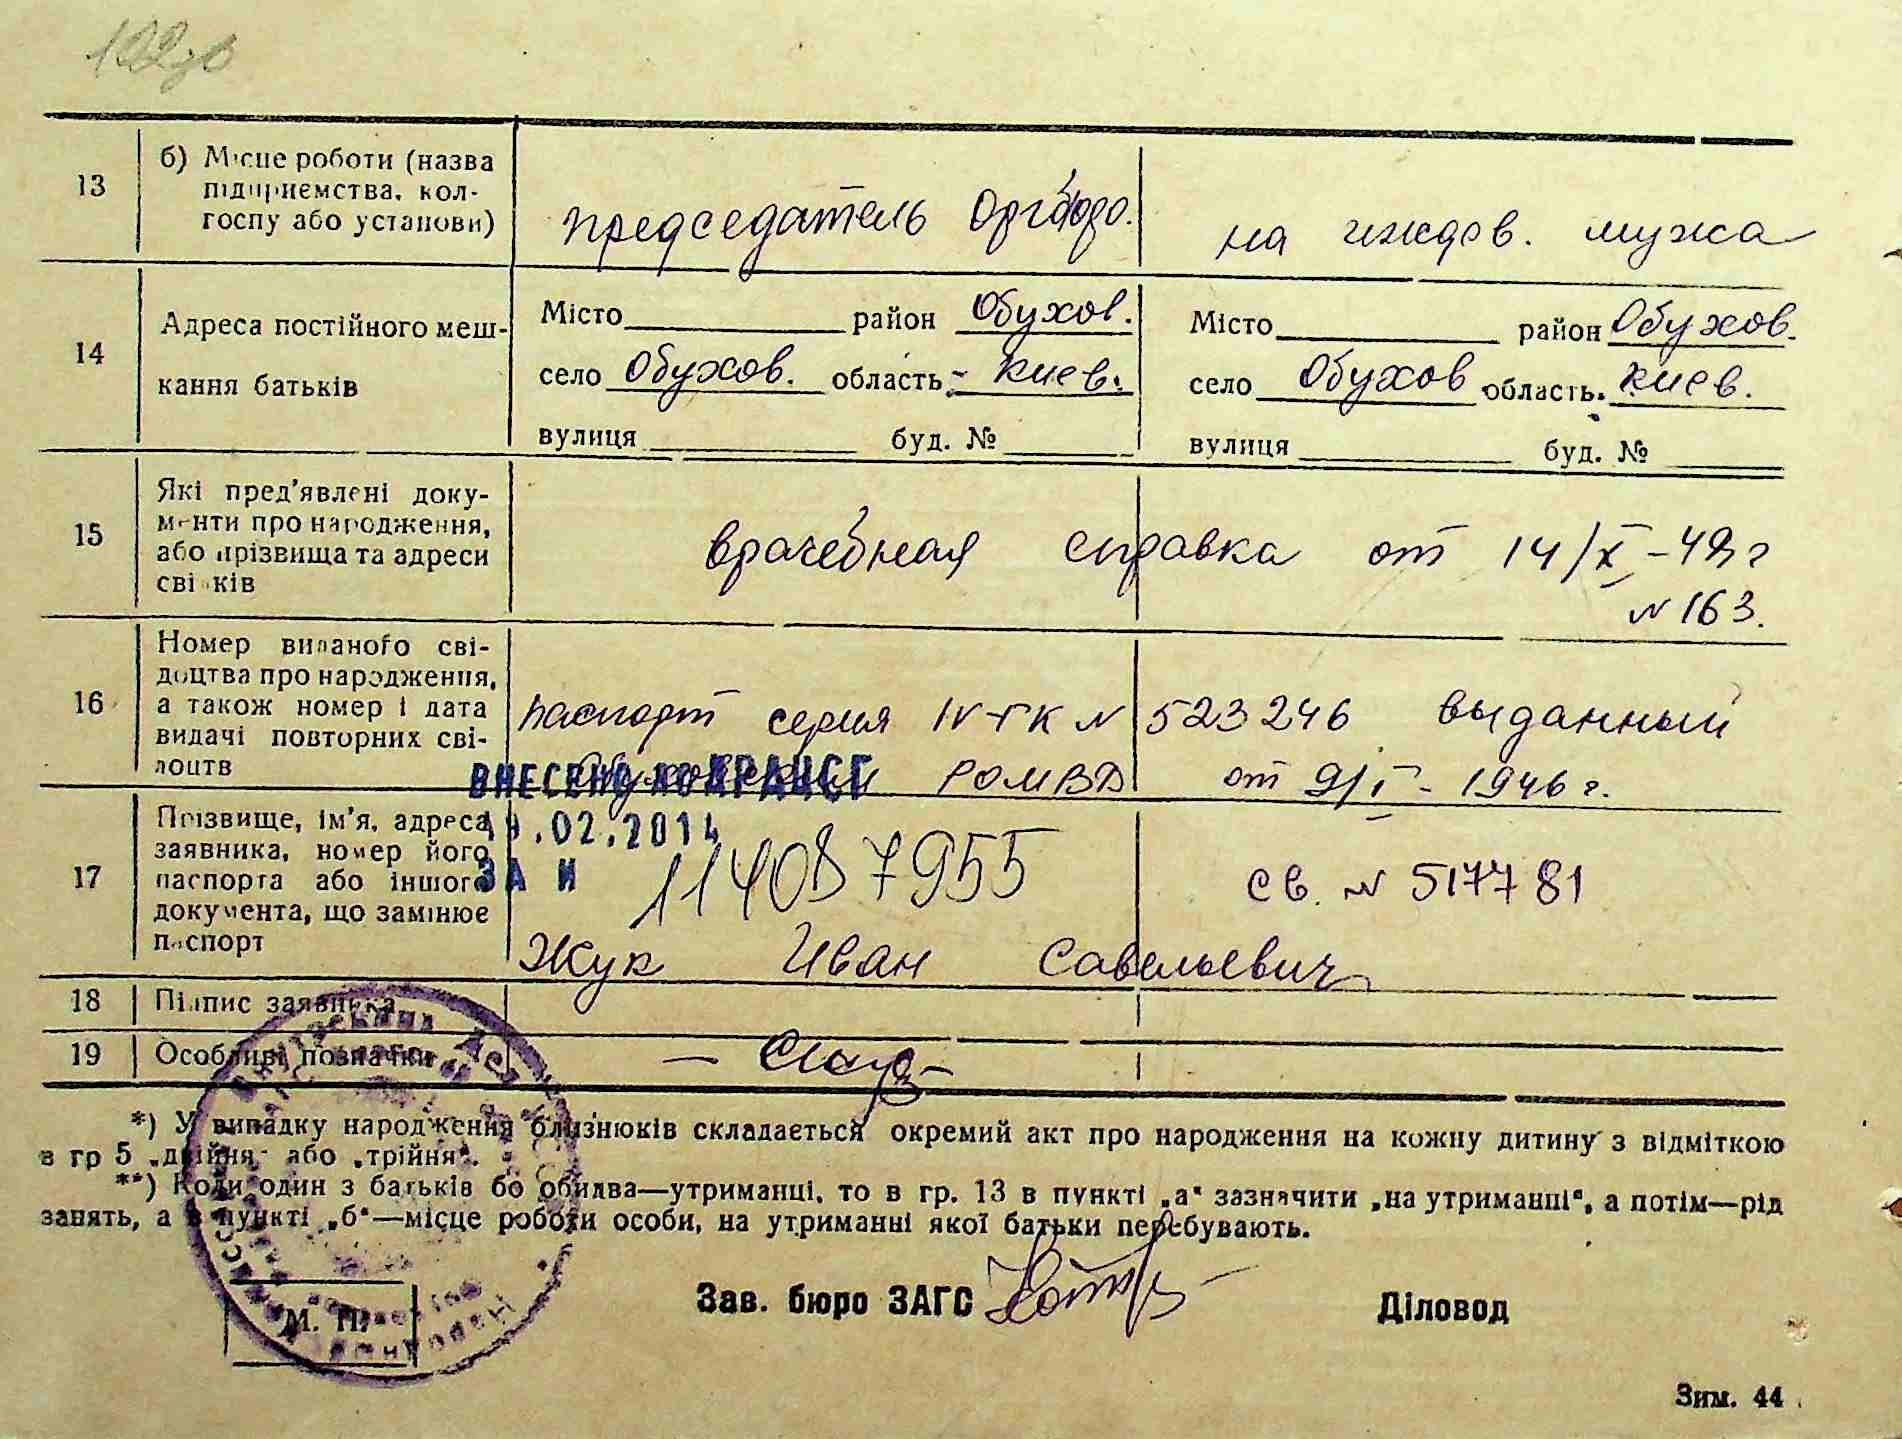 122зв
13
б) Місце роботи (назва
підприємства, кол-
госпу або установи)
председатель Оргбюро.
на иждев. мужа
14
Адреса постійного меш-
кання батьків
Місто район Обухов.
село Обухов. область Киев.
вулиця буд. №
Місто район Обухов.
село Обухов область Киев.
вулиця буд. №
15
Які пред'явлені доку-
менти про народження,
або прізвища та адреси
свідків
врачебная справка от 14/X-49 г
N 163.
16
Номер виданого сві-
доцтва про народження,
а також номер і дата
видачі повторних сві-
доцтв
паспорт серия IV-ГК N 523246 выданный
Обуховским РОМВД от 9/I - 1946 г.
ВНЕСЕНО ДО ДРАЦСГ
.02.2014
ЗА N 11408 7955
17
Прізвище, ім'я, адреса
заявника, номер його
паспорта або іншого
документа, що замінює
паспорт
св. N 517781
Жук Иван Савельевич
18
Підпис заявника
19
Особливі позначки
*) У випадку народження близнюків складається окремий акт про народження на кожну дитину з відміткою
в гр 5 „двійня" або „трійня".
**) Коли один з батьків бо обидва—утриманці, то в гр. 13 в пункті „а" зазначити „на утриманні", а потім—рід
занять, а в пункті „б"—місце роботи особи, на утриманні якої батьки перебувають.
Зав. бюро ЗАГС
Діловод
М. П.
Зим. 44